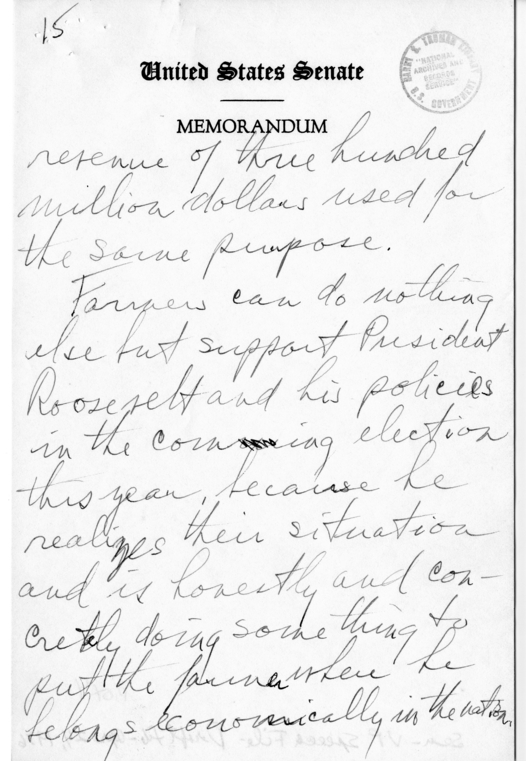 15
United States Senate
MEMORANDUM
HARRY S. TRUMAN LIBRARY
"NATIONAL
ARCHIVES AND
RECORDS
SERVICE"
U.S. GOVERNMENT
revenue of three hundred
million dollars used for
the same purpose.
Farmers can do nothing
else but support President
Roosevelt and his policies
in the coming election
this year, because he
realizes their situation
and is honestly and con-
cretly doing something to
put the farmer where he
belongs economically in the nation.